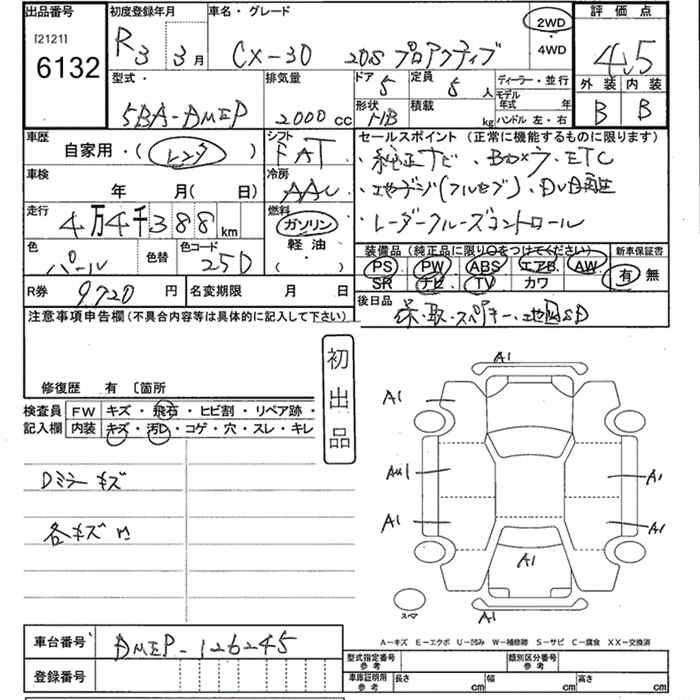 出品番号 初度登録年月 車名・グレード 2WD 評価点
[2121]
6132 R3 3月 CX-30 20S プロアクティブ ・4WD 4.5
型式・ 排気量 ドア 定員 ディーラー・並行 外装 内装
5BA-DMEP 2000 cc 5 5人 モデル年式 年 B B
形状 積載 ハンドル 左・右
HB kg
車歴 シフト セールスポイント(正常に機能するものに限ります)
自家用・(レンタ) FAT ・純正ナビ、Bカメラ、ETC
車検 冷房
年 月( 日) AAC ・地デジ(フルセグ)、DVD再生
走行 燃料
4万4千388km ガソリン ・レーダークルーズコントロール
軽油・
( )
色 色替 色コード 装備品(純正品に限り○をつけてください) 新車保証書
パール 25D PS PW ABS エアB AW 有 無
SR ナビ TV カワ
R券 9720円 名変期限 月 日 後日品
保・取・スペキー・地図SD
注意事項申告欄(不具合内容等は具体的に記入して下さい)
初出品
修復歴 有 〔箇所
検査員 FW キズ・飛石・ヒビ割・リペア跡・
記入欄 内装 キズ・汚レ・コゲ・穴・スレ・キレ
A1
A1
Dミラーキズ AU1 A1
各キズ有 A1 A1
A1
スペア A1
A-キズ E-エクボ U-凹み W-補修跡 S-サビ C-腐食 XX-交換済
車台番号 DMEP-126245
型式指定番号 参考 類別区分番号 参考
登録番号 車庫証明用 参考 長さ cm 幅 cm 高さ cm